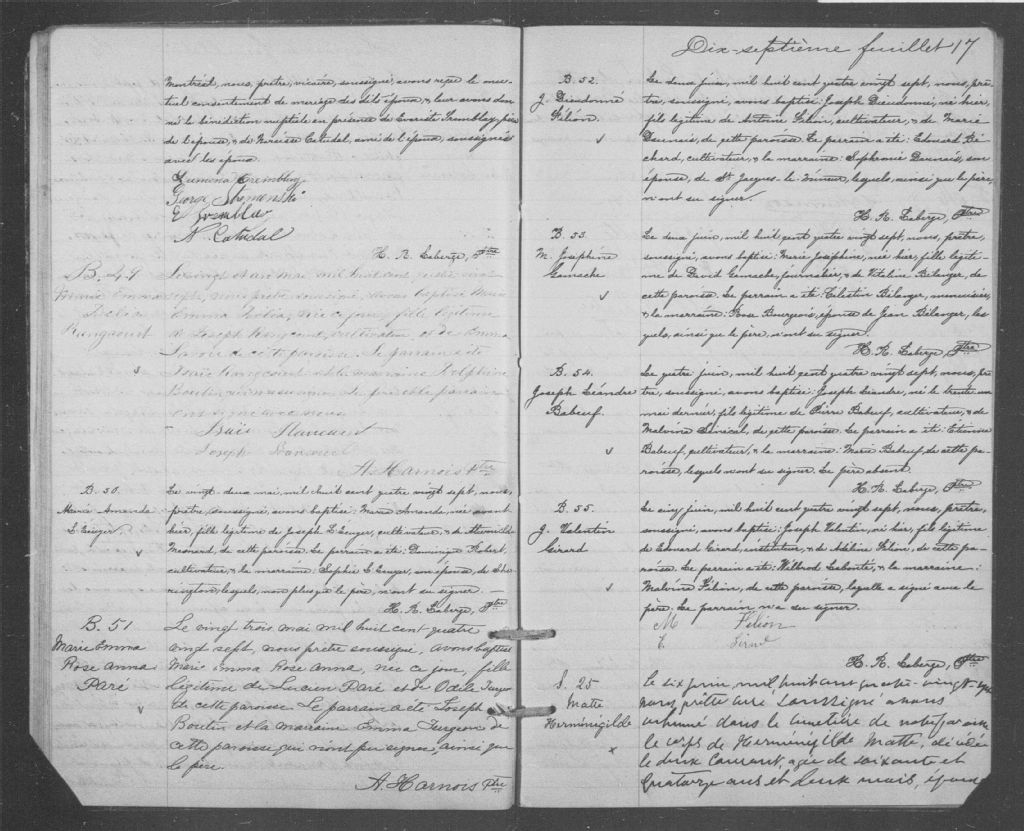 Montréal, nous, prêtre, vicaire, soussigné, avons reçu le mu-
tuel consentement de mariage des dits époux, & leur avons don-
né la bénédiction nuptiale en présence de Evariste Tremblay, père
de l'épouse, & de Narcisse Catudal, ami de l'époux, soussignés
avec les époux.
Tremblay
George
E Tremblay
N. Catudal
H. R. Laberge, Ptre
B. 49
Marie Emma
Le vingt et un mai mil huit cent quatre vingt
sept, nous prêtre soussigné, avons baptisé Marie
Emma née ce jour, fille légitime
de Joseph cultivateur et de Emma
de cette paroisse. Le parrain a été
et la marraine Delphine
Boutin
Joseph
A. Harnois Ptre
B. 50.
Marie Amanda
Le vingt-deux mai, mil huit cent quatre vingt sept, nous,
prêtre, soussigné, avons baptisé: Marie Amanda, née avant
hier, fille légitime de Joseph cultivateur, & de
Mesnard, de cette paroisse. Le parrain a été: Dominique Robert,
cultivateur, & la marraine: Sophie son épouse, de She-
rington, lesquels, non plus que le père, n'ont su signer.
H. R. Laberge, Ptre
B. 51
Marie Emma
Rose Anna
Paré
Le vingt trois mai mil huit cent quatre
vingt sept, nous prêtre soussigné, avons baptisé
Marie Emma Rose Anna, née ce jour, fille
légitime de Lucien Paré et de Odile
de cette paroisse. Le parrain a été Joseph
Boutin et la marraine Emma Turgeon de
cette paroisse qui n'ont pu signer, ainsi que
le père.
A. Harnois Ptre
Dix-septième feuillet 17
B. 52.
J. Dieudonné
Filion.
Le deux juin, mil huit cent quatre vingt sept, nous, prê-
tre, soussigné, avons baptisé: Joseph Dieudonné, né hier,
fils légitime de Antoine Filion, cultivateur, & de Marie
Daunais, de cette paroisse. Le parrain a été: Edouard Bé-
chard, cultivateur, & la marraine: Sophronie Daunais, son
épouse, de St Jacques-le-Mineur, lesquels, ainsi que le père,
n'ont su signer.
H. R. Laberge, Ptre
B. 53.
M. Joséphine
Gamache
Le deux juin, mil huit cent quatre vingt sept, nous, prêtre,
soussigné, avons baptisé: Marie Joséphine, née hier, fille légiti-
me de David Gamache, journalier, & de Vitaline Bélanger, de
cette paroisse. Le parrain a été: Célestin Bélanger, menuisier,
& la marraine: Rose Bourgeois, épouse de Jean Bélanger, les-
quels, ainsi que le père, n'ont su signer.
H. R. Laberge, Ptre
B. 54.
Joseph Léandre
Babeuf.
Le quatre juin, mil huit cent quatre vingt sept, nous, prê-
tre, soussigné, avons baptisé: Joseph Léandre, né le trente un
mai dernier, fils légitime de Pierre Babeuf, cultivateur, & de
Malvina Sénécal, de cette paroisse. Le parrain a été: Etienne
Babeuf, cultivateur, & la marraine: Marie Babeuf, de cette pa-
roisse, lesquels n'ont su signer. Le père absent.
H. R. Laberge, Ptre
B. 55.
J. Valentin
Girard
Le cinq juin, mil huit cent quatre vingt sept, nous, prêtre,
soussigné, avons baptisé: Joseph Valentin, né hier, fils légitime
de Edouard Girard, instituteur, & de Adéline Filion, de cette pa-
roisse. Le parrain a été: Wilbrod Labonté, & la marraine:
Malvina Filion, de cette paroisse, laquelle a signé avec le
père. Le parrain n'a su signer.
M Filion
E
H. R. Laberge, Ptre
S. 25
Matte
Herménégilde
Le six juin, mil huit cent quatre-vingt-sept
nous prêtre curé soussigné avons
inhumé dans le cimetière de notre paroisse
le corps de Herménégilde Matte, décédé
le deux courant, âgé de soixante et
quatorze ans et deux mois, époux